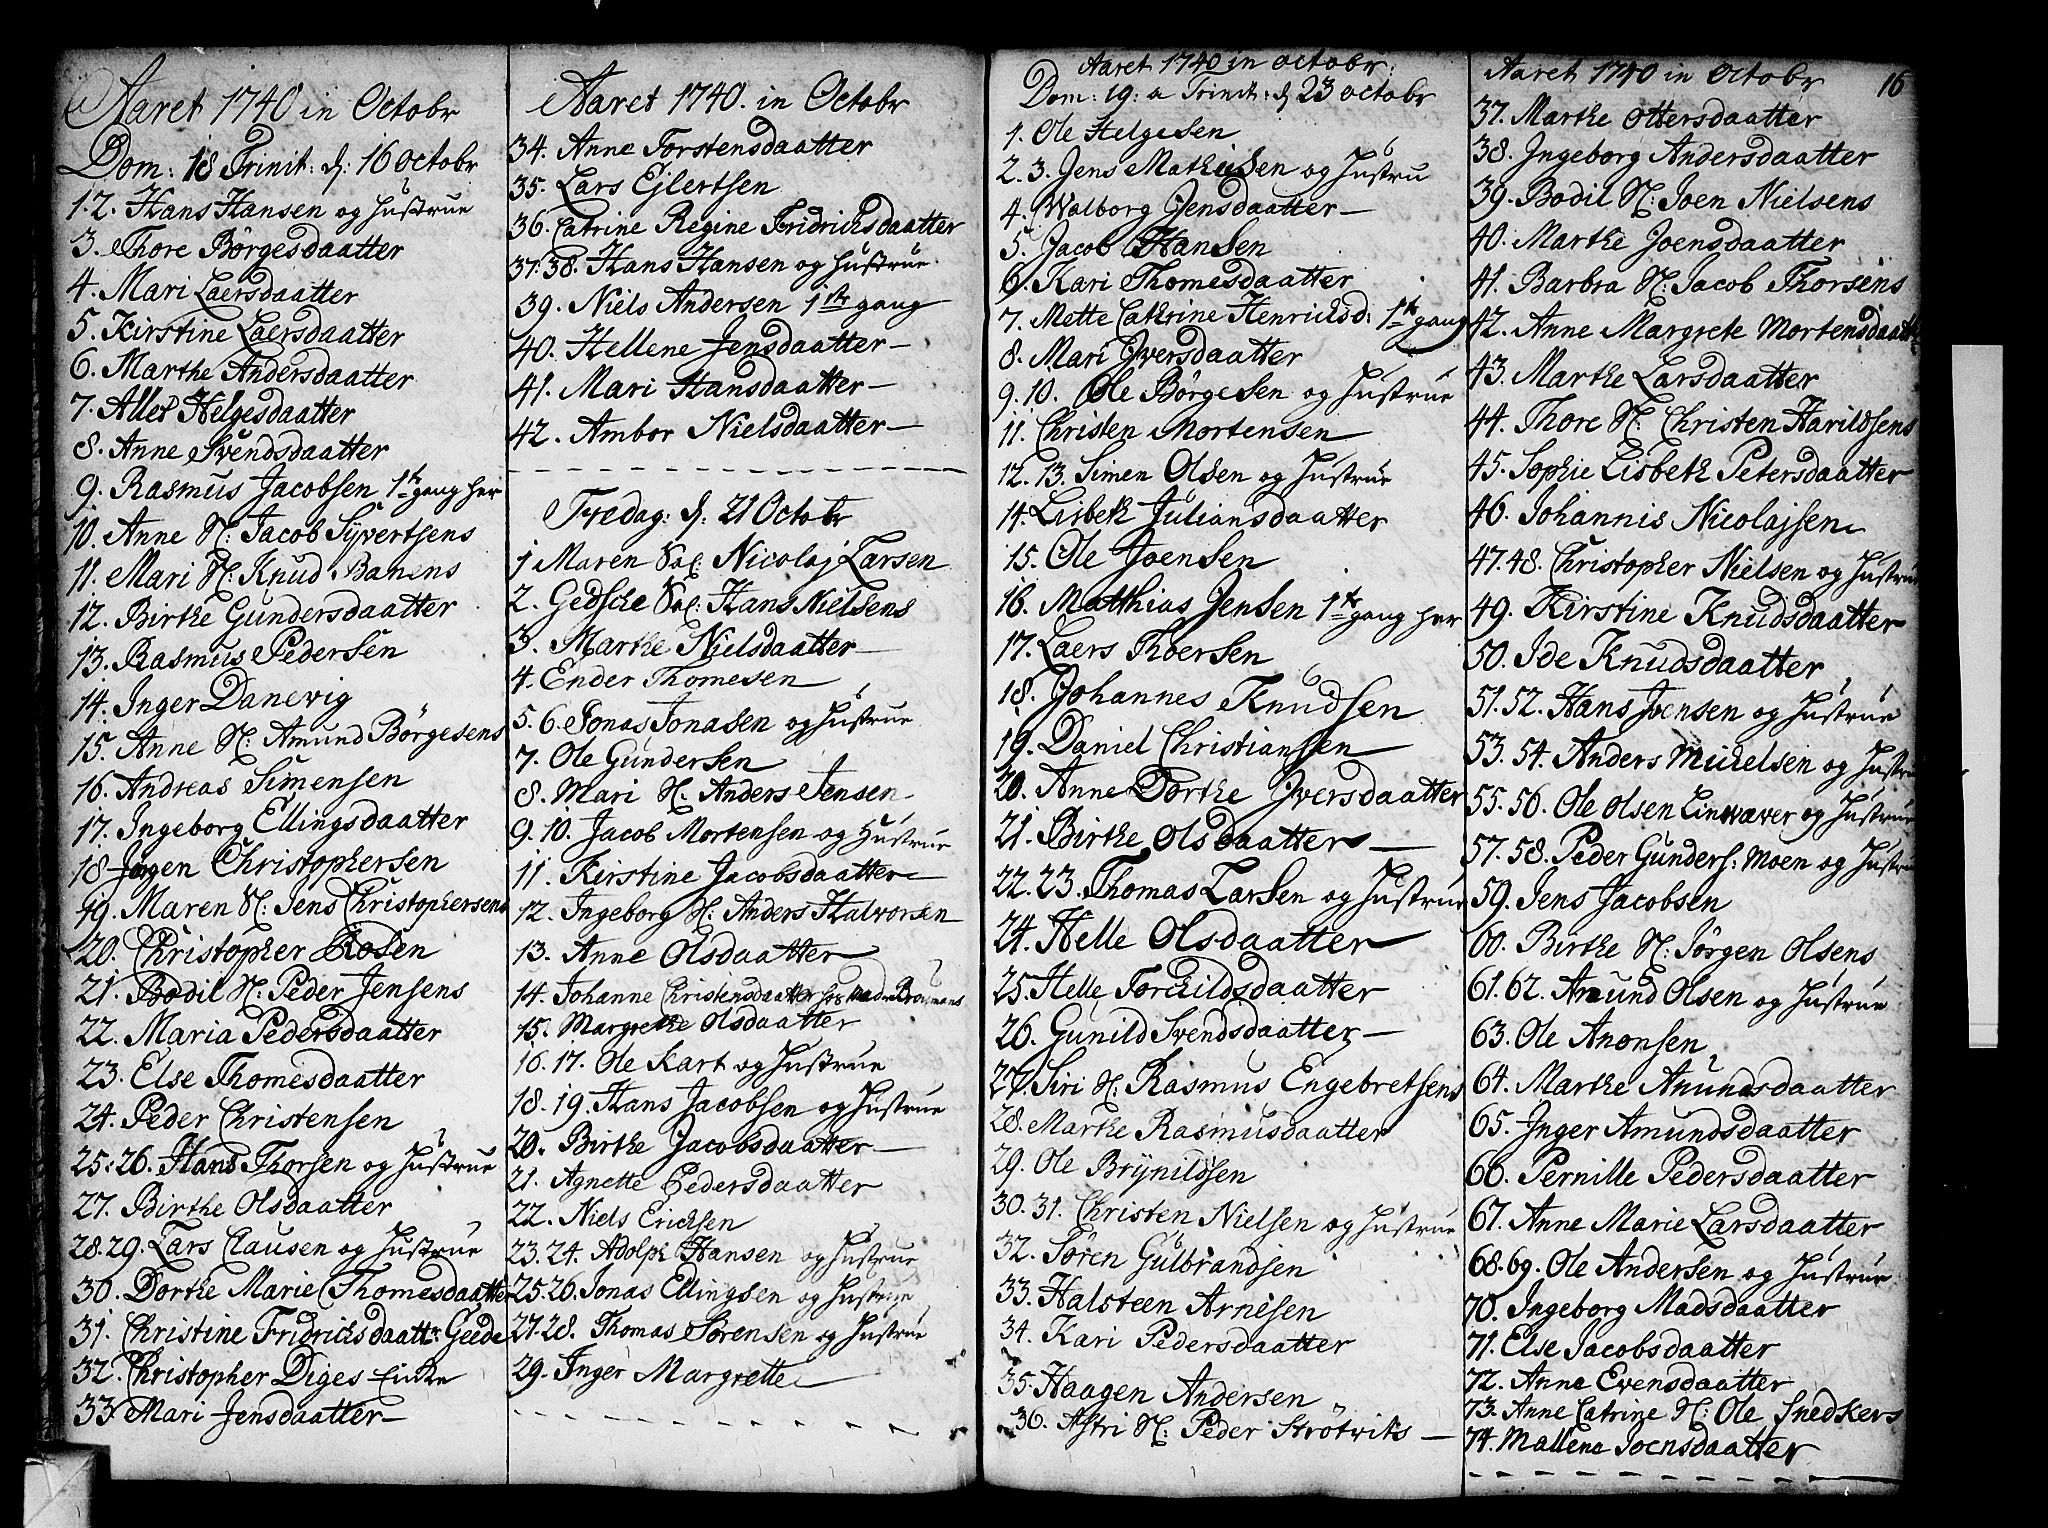 Aaret 1740 in Octobr
Dom: 18 Trinit: d: 16 octobr
1.2. Hans Hansen og Hustrue
3. Thore Börgesdaatter
4. Mari Laersdaatter
5. Kirstine Laersdaatter
6. Marthe Andersdaatter
7. Allet Helgesdaatter
8. Anne Svendsdaatter
9. Rasmus Jacobsen 1ste gang her
10. Anne S: Jacob Syvertsens
11. Mari S: Knud Banens
12. Birthe Gundersdaatter
13. Rasmus Pedersen
14. Inger Danevig
15. Anne S: Amund Börgesens
16. Andreas Simensen
17. Ingeborg Ellingsdaatter
18 Jörgen Christophersen
19. Maren S: Jens Christophersens
20. Christopher Rosen
21. Bodil S: Peder Jensens
22. Maria Pedersdaatter
23. Else Thomesdaatter
24. Peder Christensen
25.26. Hans Thorsen og Hustrue
27. Birthe Olsdaatter
28.29. Lars Clausen og Hustrue
30. Dorthe Marie Thomesdaatter
31. Christine Fridrichsdaatt: Geede
32. Christopher Diges Enke
33 Mari Jensdaatter
Aaret 1740. in Octobr
34. Anne Torstensdaatter
35. Lars Ejlertsen
36. Catrine Regine Fridrichsdaatter
37.38. Hans Hansen og Hustrue
39. Niels Andersen 1ste gang
40. Hellene Jensdaatter
41. Mari Hansdaatter
42. Ambor Nielsdaatter
Fredag: d: 21 Octobr
1 Maren Sal: Nicolaj Larsen
2. Gedsche Sal: Hans Nielsens
3. Marthe Nielsdaatter
4. Ender Thomesen
5.6. Jonas Jonasen og Hustrue
7. Ole Gundersen
8. Mari S: Anders Jensen
9.10. Jacob Mortensen og Hustrue
11. Kirstine Jacobsdaatter
12. Ingeborg S: Anders Halvorsen
13. Anne Olsdaatter
14. Johanne Christensdaatter hos Mad
15. Margrethe Olsdaatter
16.17. Ole Kart og Hustrue
18.19. Hans Jacobsen og Hustrue
20. Birthe Jacobsdaatter
21. Agnette Pedersdaatter
22. Niels Erichsen
23.24. Adolph Hansen og Hustrue
25.26. Jonas Ellingsen og Hustrue
27.28. Thomas Sörensen og Hustrue
29. Inger Margrette
Aaret 1740 in octobr:
Dom: 19: a Trinit: d 23 octobr
1. Ole Helgesen
2.3. Jens Mathisen og Hustru
4. Walborg Jensdaatter
5. Jacob Hansen
6. Kari Thomesdaatter
7. Mette Cathrine Henrichsd: 1ste gang
8. Mari Iversdaatter
9.10. Ole Börgesen og Hustrue
11. Christen Mortensen
12.13. Simen Olsen og Hustrue
14. Lisbeth Juliansdaatter
15. Ole Joensen
16. Matthias Jensen 1ste gang her
17. Laers Thoersen
18. Johannes Knudsen
19. Daniel Christiansen
20. Anne Dorthe Iversdaatter
21. Birthe Olsdaatter
22.23. Thomas Larsen og Hustrue
24. Helle Olsdaatter
25. Helle Torchildsdaatter
26. Gunild Svendsdaatter
27. Siri S: Rasmus Engebretsens
28. Marthe Rasmusdaatter
29. Ole Brynildsen
30.31. Christen Nielsen og Hustrue
32. Sören Gulbrandsen
33. Halsteen Arnesen
34. Kari Pedersdaatter
35. Haagen Andersen
36. Astri S: Peder Strötviks
Aaret 1740 in Octobr 16
37. Marthe Ottersdaatter
38. Ingeborg Andersdaatter
39. Bodil S: Joen Nielsens
40. Marthe Joensdaatter
41. Barbra S: Jacob Thorsens
42. Anne Margrete Mortensdaatt
43. Marthe Larsdaatter
44. Thore S: Christen Harildsens
45. Sophie Lisbeth Petersdaatter
46. Johannis Nicolajsen
47.48. Christopher Nielsen og Hustrue
49. Kirstine Knudsdaatter
50. Ide Knudsdaatter
51.52. Hans Ivensen og Hustrue
53.54. Anders Michelsen og Hustrue
55.56. Ole Olsen Linwæver og Hustrue
57.58. Peder Gunders: Moen og Hustrue
59. Jens Jacobsen
60. Birthe S: Jörgen Olsens
61.62. Amund Olsen og Hustrue
63. Ole Anonsen
64. Marthe Anundsdaatter
65. Inger Amundsdaatter
66. Pernille Pedersdaatter
67. Anne Marie Larsdaatter
68.69. Ole Andersen og Hustrue
70. Ingeborg Madsdaatter
71. Else Jacobsdaatter
72. Anne Evensdaatter
73. Anne Catrine S: Ole Snedkers
74. Mallene Joensdaatter